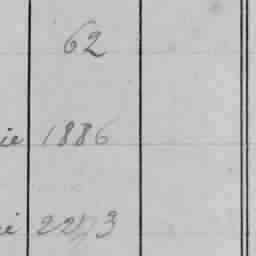 62
ie 1886
i 2273